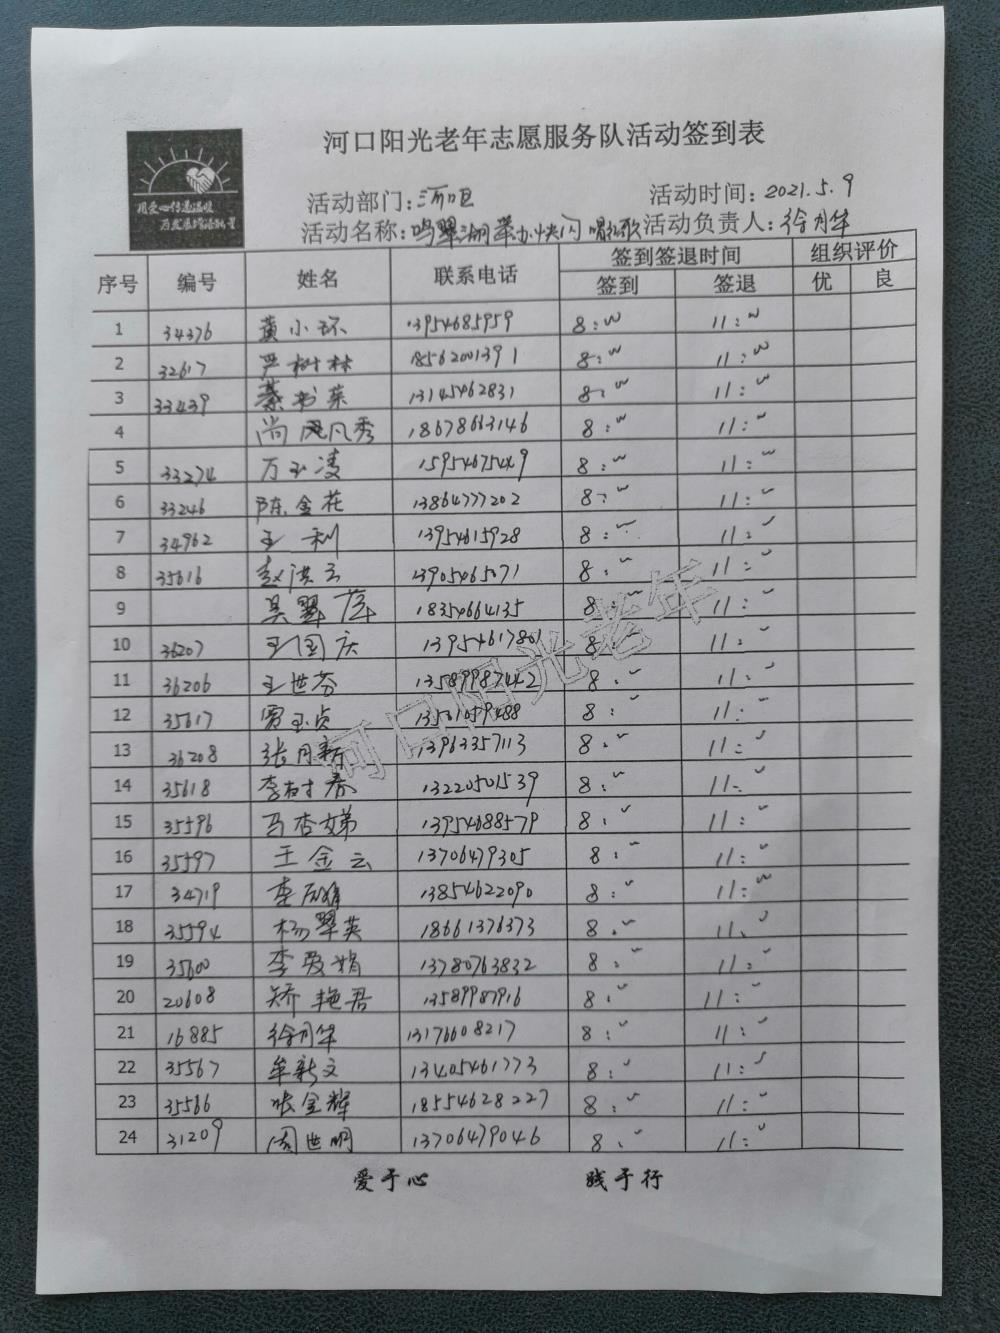 河口阳光老年志愿服务队活动签到表
用爱心传递温暖
活动部门：河口区 活动时间：2021.5.9
活动名称：鸣翠湖举办快闪唱红歌 活动负责人：徐月华
序号 编号 姓名 联系电话 签到签退时间 组织评价
签到 签退 优 良
1 34376 黄小环 13954685959 8:00 11:00
2 32617 严树林 18562001391 8:00 11:00
3 33439 綦书菜 13145462831 8:00 11:00
4 尚凤秀 18678663146 8:00 11:00
5 33274 万玉凌 15954675449 8:00 11:00
6 33246 陈金花 13864777202 8:00 11:00
7 34962 王利 13954615928 8:00 11:00
8 35616 赵洪云 13905465071 8:00 11:00
9 吴翠萍 18354664135 8:00 11:00
10 36207 王国庆 13954617801 8:00 11:00
11 36206 王世芬 13589987442 8:00 11:00
12 35617 贾玉贞 13561059488 8:00 11:00
13 36208 张月新 13963357113 8:00 11:00
14 35618 李树春 13220501539 8: 11:
15 35596 马杏娣 13954688579 8:00 11:00
16 35597 王金云 13706479305 8:00 11:00
17 34719 李 13854622090 8:00 11:00
18 35594 杨翠英 18661376373 8:00 11:00
19 35600 李爱娟 13780763832 8:00 11:00
20 20608 矫艳君 13589987916 8:00 11:00
21 16885 徐月华 13176608217 8:00 11:00
22 35567 牟新文 13405461773 8:00 11:00
23 35566 张金辉 18554628227 8:00 11:00
24 31209 周世明 13706479046 8:00 11:00
河口阳光老年
爱于心 践于行